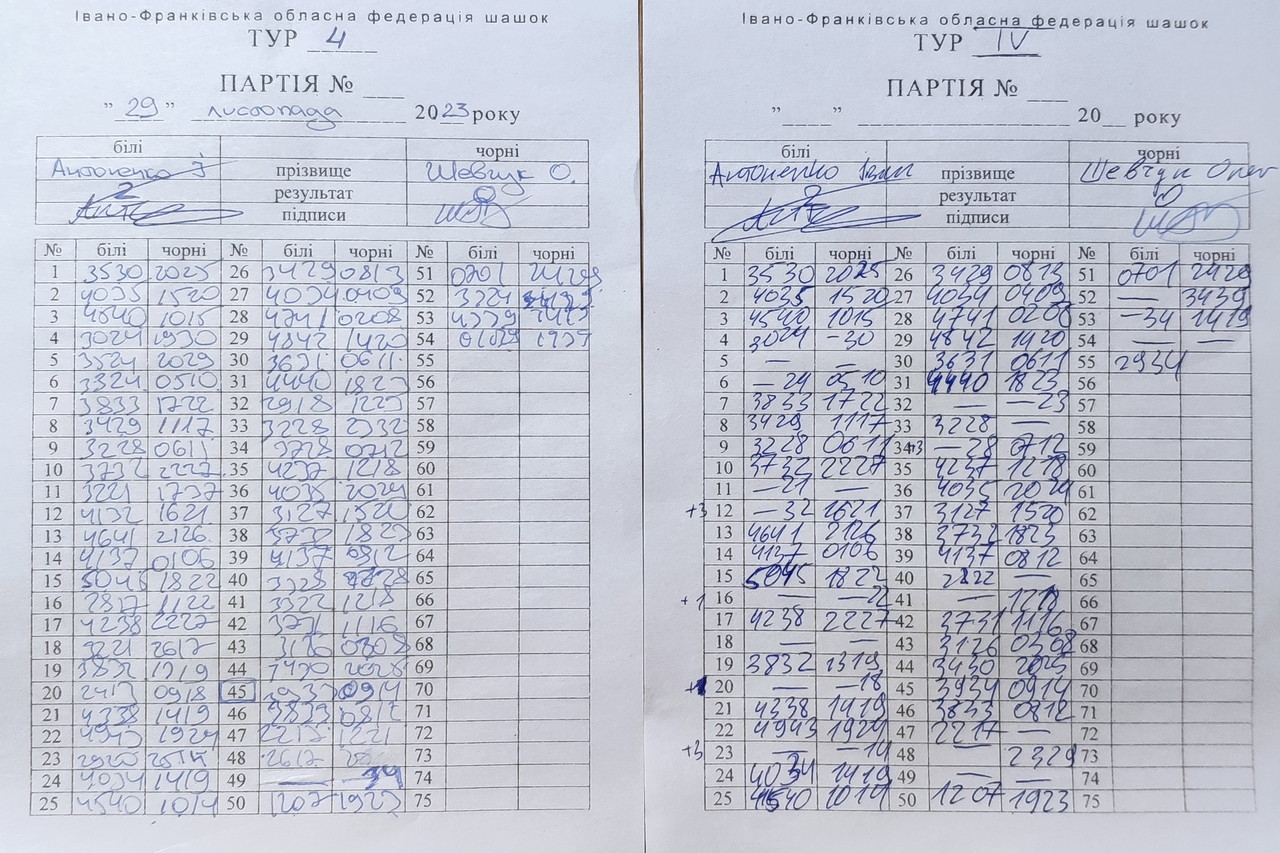 Івано-Франківська обласна федерація шашок
ТУР 4
ПАРТІЯ №
" 29 " листопада 2023 року
білі чорні
Антоненко І прізвище Шевчук О.
2 результат 0
підписи
№ білі чорні № білі чорні № білі чорні
1 3530 2025 26 3429 0813 51 0701 2429
2 4035 1520 27 4034 0409 52
3 4540 1015 28 4741 0208 53
4 3024 1930 29 4842 1420 54
5 3524 2029 30 3631 0611 55
6 3324 0510 31 4440 1823 56
7 3833 1722 32 2918 1223 57
8 3429 1117 33 3228 2332 58
9 3228 0611 34 3728 0712 59
10 3732 2227 35 4237 1218 60
11 3221 1737 36 4035 2024 61
12 4132 1621 37 3127 1520 62
13 4641 2126 38 3732 1823 63
14 4137 0106 39 4137 0812 64
15 5045 1822 40 65
16 2817 1122 41 1218 66
17 4238 2227 42 3731 1116 67
18 3221 2617 43 3126 0308 68
19 3832 1319 44 3430 2025 69
20 2413 0918 45 3933 0914 70
21 4338 1419 46 3833 0812 71
22 4943 1924 47 2213 1221 72
23 2920 48 2617 73
24 4034 1419 49 — 74
25 4540 1014 50 1207 1923 75
Івано-Франківська обласна федерація шашок
ТУР IV
ПАРТІЯ №
" " 20 року
білі чорні
Антоненко Іван прізвище Шевчук Олег
2 результат 0
підписи
№ білі чорні № білі чорні № білі чорні
1 3530 2025 26 3429 0813 51 0701 2429
2 4035 1520 27 4034 0409 52 — 3439
3 4540 1015 28 4741 0208 53 —34 1419
4 3024 -30 29 4842 1420 54 — —
5 — — 30 3631 0611 55 2934
6 —24 0510 31 4440 1823 56
7 3833 1722 32 — —23 57
8 3429 1117 33 3228 — 58
9 3228 0611 34 +3 —28 0712 59
10 3732 2227 35 4237 1218 60
11 —21 — 36 4035 2024 61
+3 12 —32 1621 37 3127 1520 62
13 4641 2126 38 3732 1823 63
14 4137 0106 39 4137 0812 64
15 5045 1822 40 — 65
+1 16 — —22 41 — 1218 66
17 4238 2227 42 3731 1116 67
18 — — 43 3126 0308 68
19 3832 1319 44 3430 2025 69
20 — —18 45 3934 0914 70
21 4338 1419 46 3833 0812 71
22 4943 1924 47 2217 — 72
+3 23 — —14 48 2329 73
24 4034 1419 49 — — 74
25 4540 1014 50 1207 1923 75